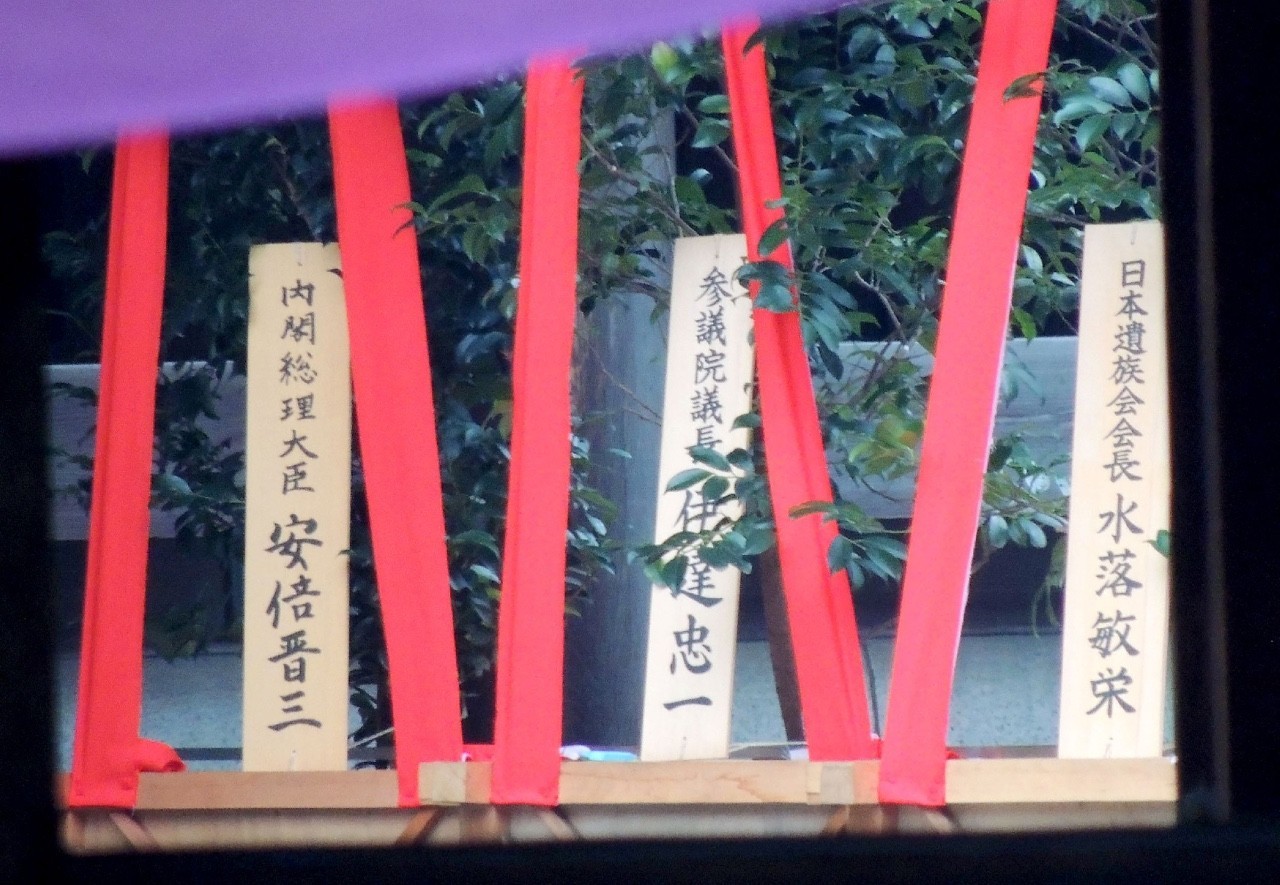 内閣総理大臣 安倍晋三
参議院議長 伊達忠一
日本遺族会会長 水落敏栄